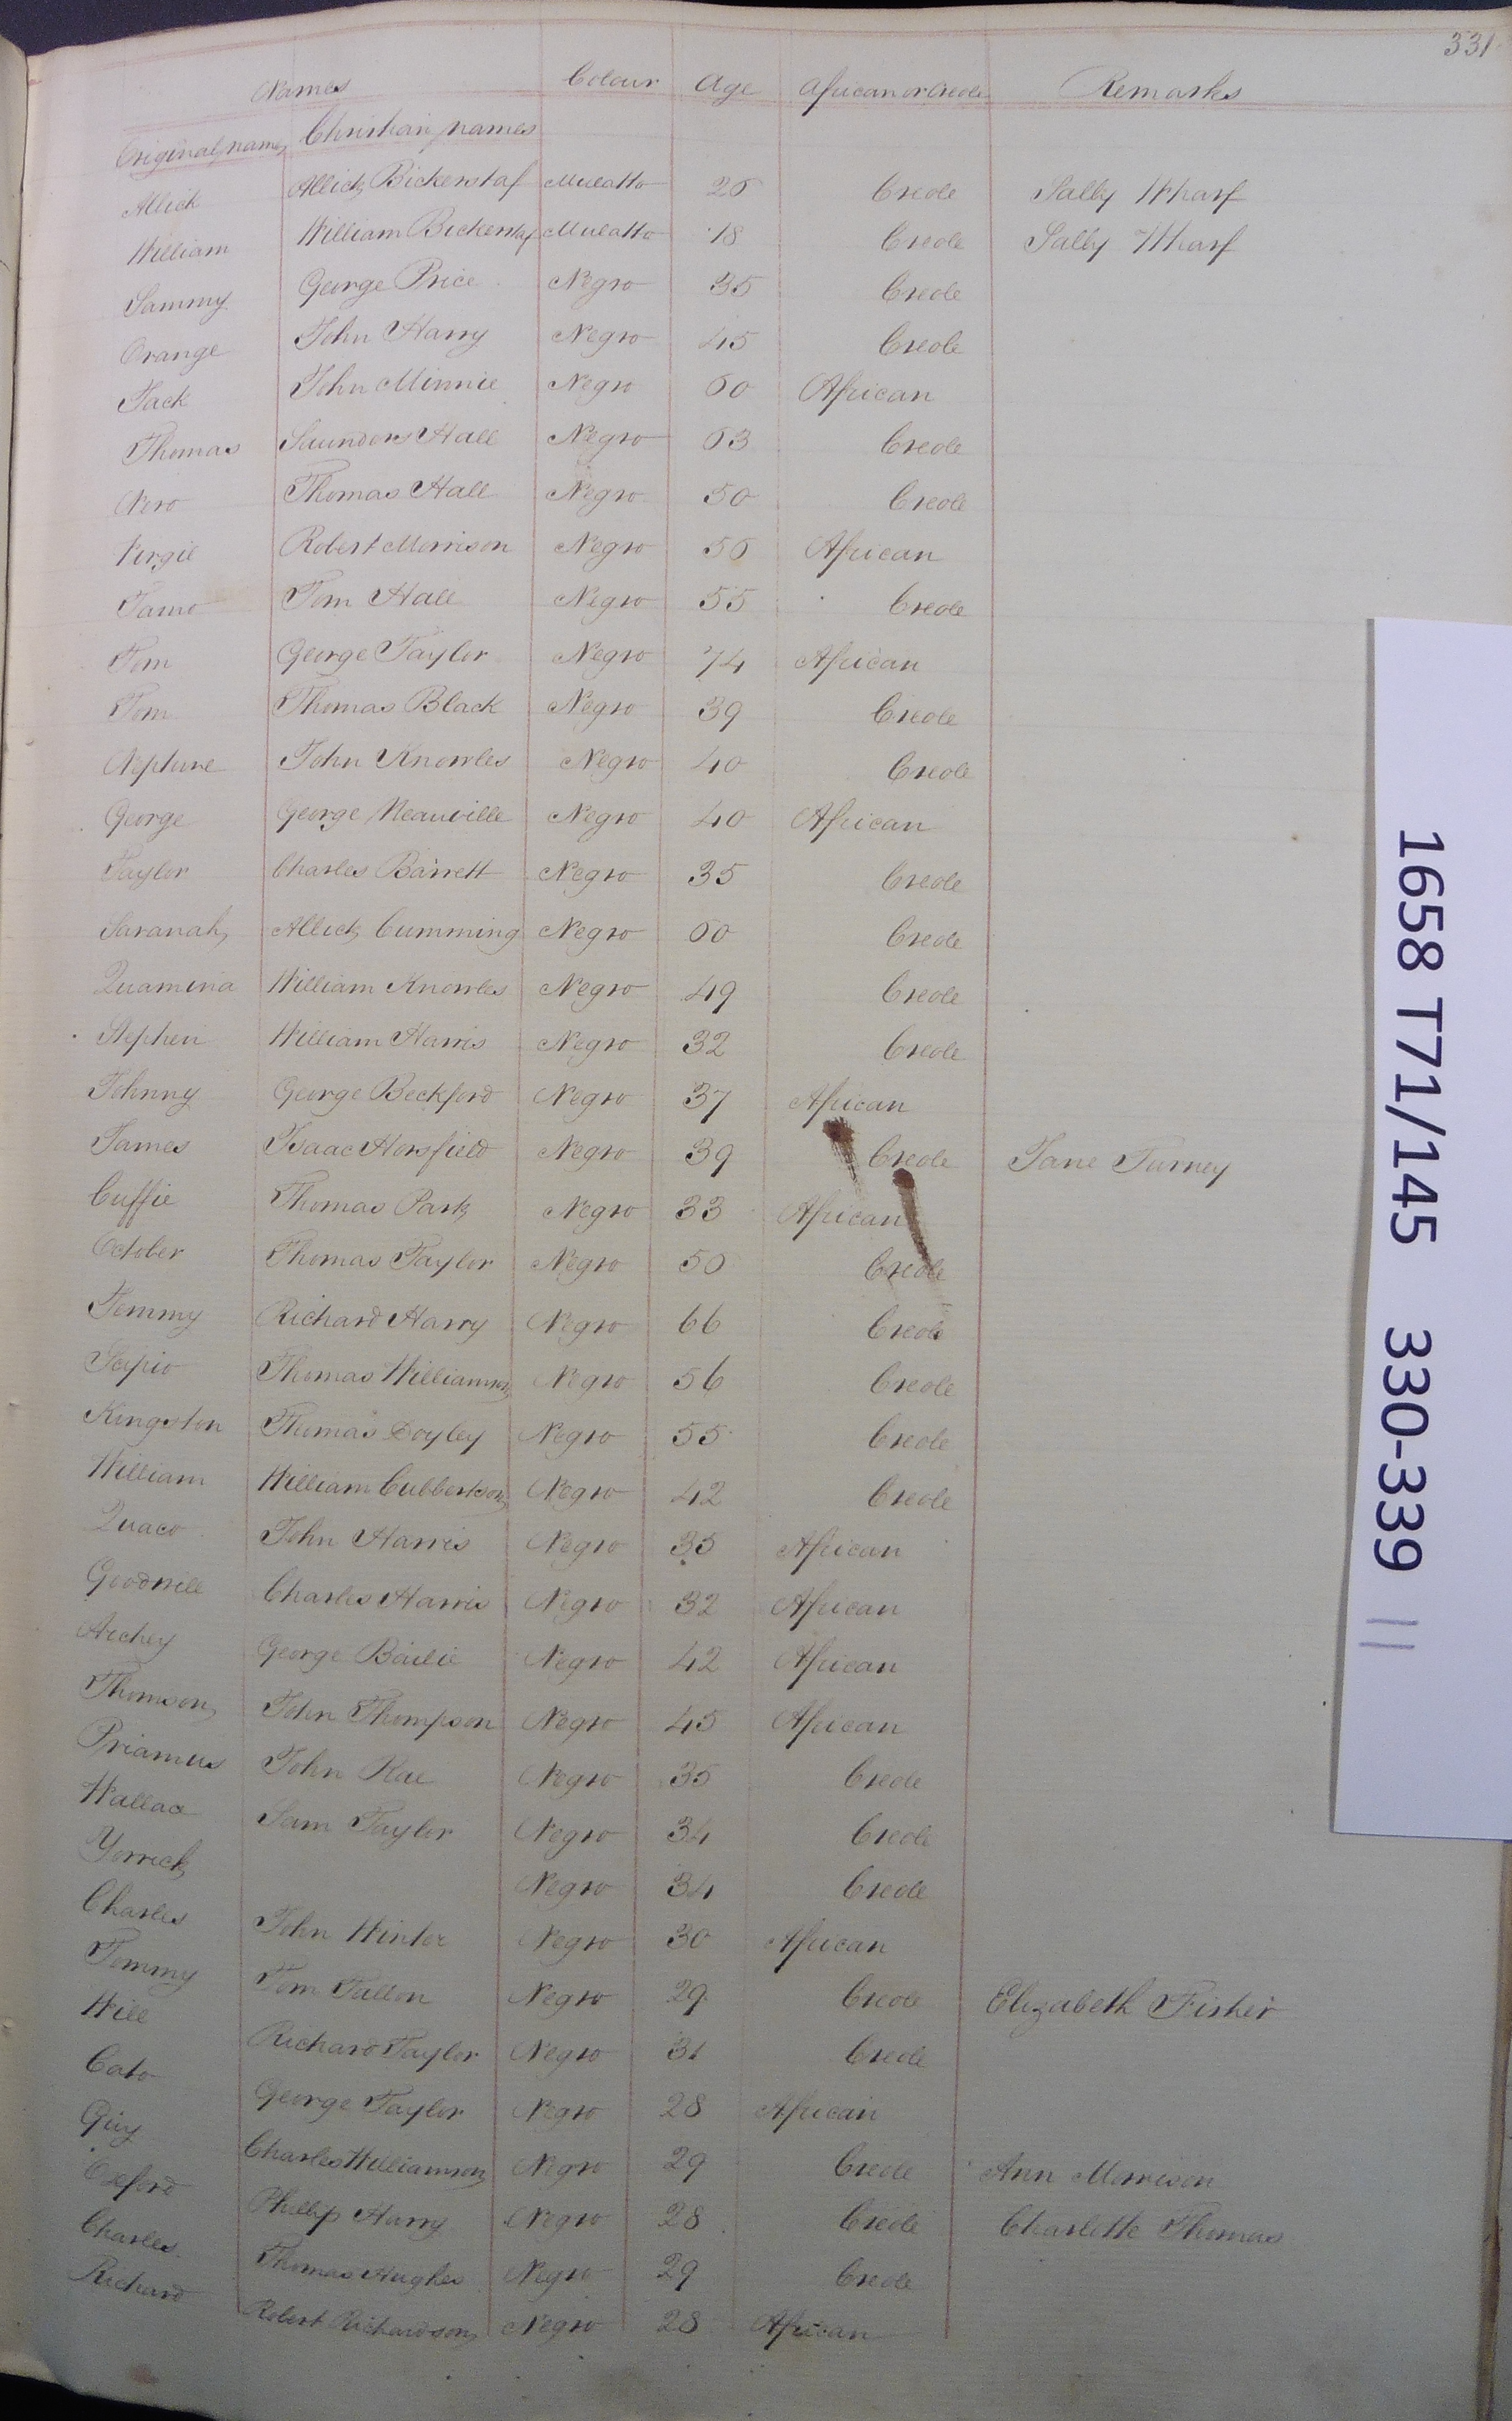 331
Names Colour Age African or Creole Remarks
Original names Christian names
Allick Allick Bickerstaf Mulatto 26 Creole Sally Wharf
William William Bickerstaf Mulatto 18 Creole Sally Wharf
Sammy George Price Negro 35 Creole
Orange John Harry Negro 45 Creole
Jack John Minnie Negro 60 African
Thomas Saunders Hall Negro 63 Creole
Nero Thomas Hall Negro 50 Creole
Virgil Robert Morrison Negro 56 African
Tamo Tom Hall Negro 55 Creole
Tom George Taylor Negro 74 African
Tom Thomas Black Negro 39 Creole
Neptune John Knowles Negro 40 Creole
George George Neauville Negro 40 African
Taylor Charles Barrett Negro 35 Creole
Savanah Allick Cumming Negro 60 Creole
Quamina William Knowles Negro 49 Creole
Stephen William Harris Negro 32 Creole
Johnny George Beckford Negro 37 African
James Isaac Horsfield Negro 39 Creole Jane Turney
Cuffie Thomas Park Negro 33 African
October Thomas Taylor Negro 50 Creole
Tommy Richard Harry Negro 66 Creole
Scipio Thomas Williamson Negro 56 Creole
Kingston Thomas Doyley Negro 55 Creole
William William Cubbertson Negro 42 Creole
Quaco John Harris Negro 35 African
Goodwill Charles Harris Negro 32 African
Archey George Bailie Negro 42 African
Thomson John Thompson Negro 45 African
Priamus John Rae Negro 35 Creole
Wallace Sam Taylor Negro 34 Creole
Yorrick Negro 34 Creole
Charles John Winter Negro 30 African
Tommy Tom Fallon Negro 29 Creole Elizabeth Fisher
Will Richard Taylor Negro 31 Creole
Cato George Taylor Negro 28 African
Guy Charles Williamson Negro 29 Creole Ann Morrison
Oxford Phillip Harry Negro 28 Creole Charlotte Thomas
Charles Thomas Hughes Negro 29 Creole
Richard Robert Richardson Negro 28 African
1658 T71/145 330-339